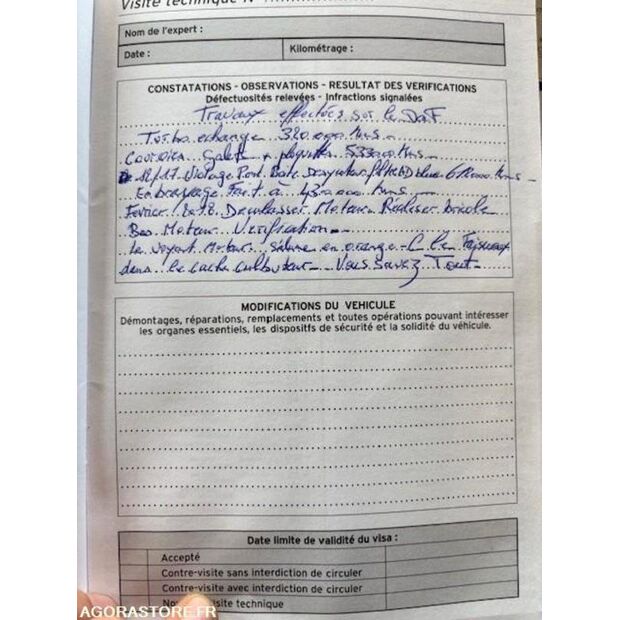 Visite technique N°
Nom de l'expert :
Date :
Kilométrage :
CONSTATATIONS - OBSERVATIONS - RESULTAT DES VERIFICATIONS
Défectuosités relevées - Infractions signalées
Travaux effectées sur le DAF
Turbo echange 320.000 Kms
Courroies Galets + plaquettes 533000 Kms
12/17 Vidange Pont Boite 618000 Kms
Embrayage Fait à 430000 Kms
Fevrier 2018 Moteur Realiser
Bas Moteur Verification
Le Voyant Moteur en orange C le Faisceaux
dans le cache culbuteur Vous Savez Tout
MODIFICATIONS DU VEHICULE
Démontages, réparations, remplacements et toutes opérations pouvant intéresser
les organes essentiels, les dispositifs de sécurité et la solidité du véhicule.
Date limite de validité du visa :
Accepté
Contre-visite sans interdiction de circuler
Contre-visite avec interdiction de circuler
visite technique
AGORASTORE.FR